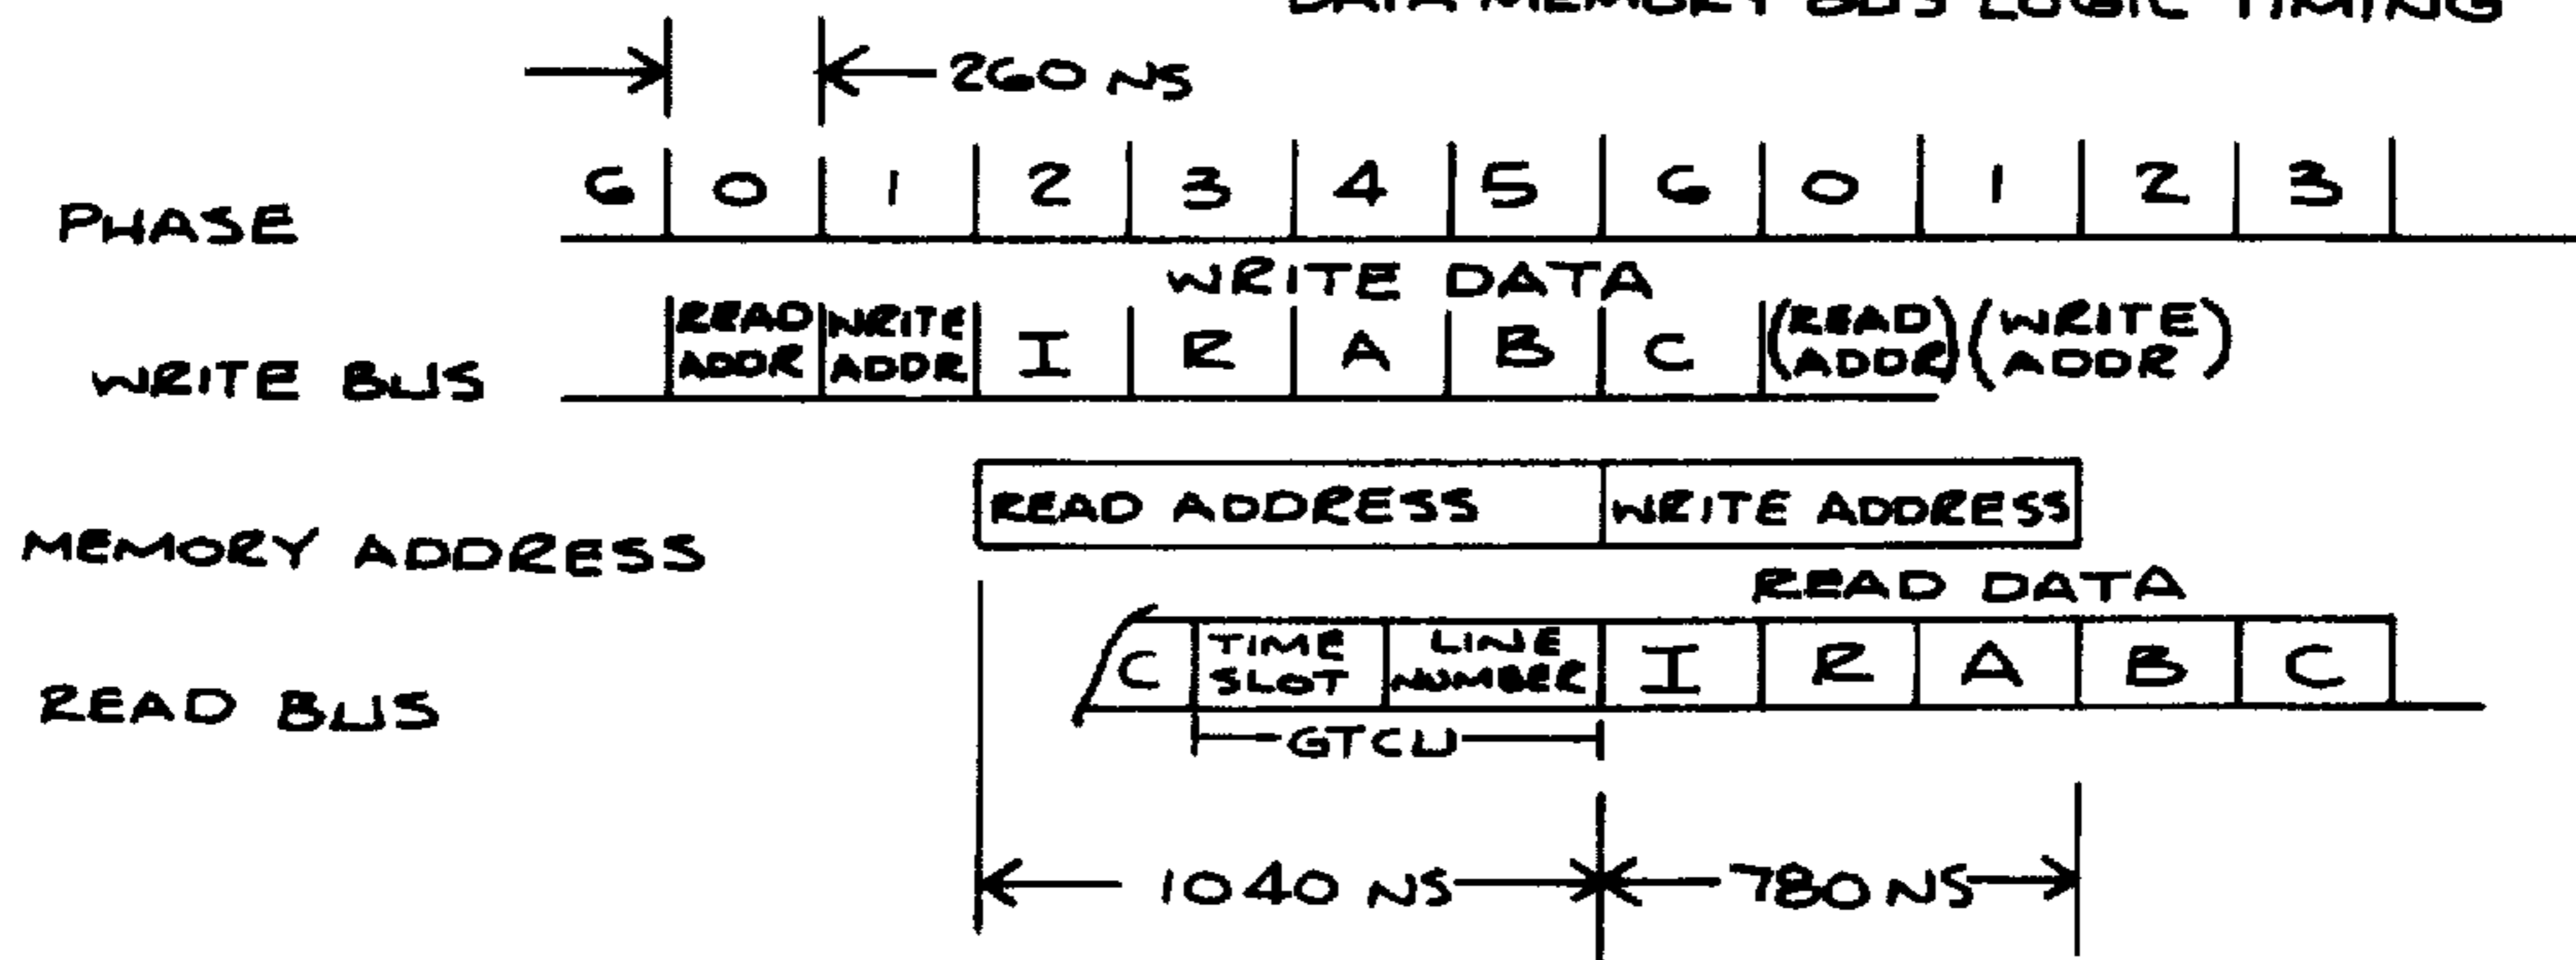 DATA MEMORY BUS LOGIC TIMING
260 NS
PHASE 6 0 1 2 3 4 5 6 0 1 2 3
WRITE DATA
WRITE BUS READ ADDR WRITE ADDR I R A B C (READ ADDR) (WRITE ADDR)
MEMORY ADDRESS READ ADDRESS WRITE ADDRESS
READ DATA
READ BUS C TIME SLOT LINE NUMBER I R A B C
GTCU
1040 NS 780 NS